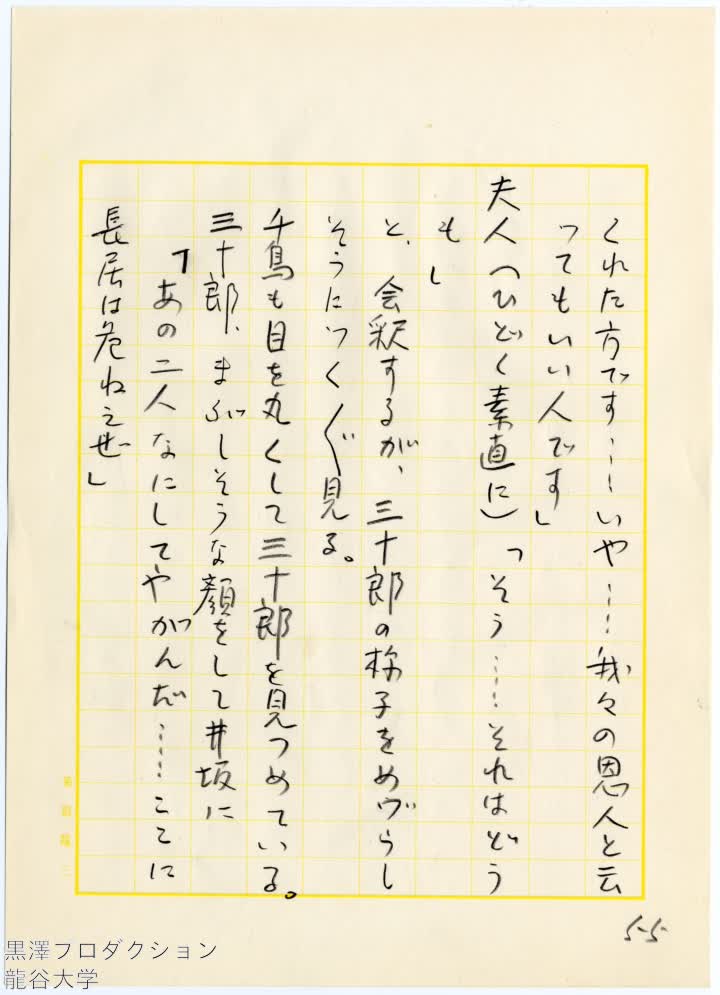 くれた方です……いや……我々の恩人と云
つてもいい人です」
夫人（ひどく素直に）「そう……それはどう
も」
と、会釈するが、三十郎の様子をめづらし
そうにつく〴〵見る。
千鳥も目を丸くして三十郎を見つめている。
三十郎、まぶしそうな顔をして井坂に
「あの二人なにしてやがんだ……ここに
長居は危ねえぜ」
5-5
黒澤プロダクション
龍谷大学